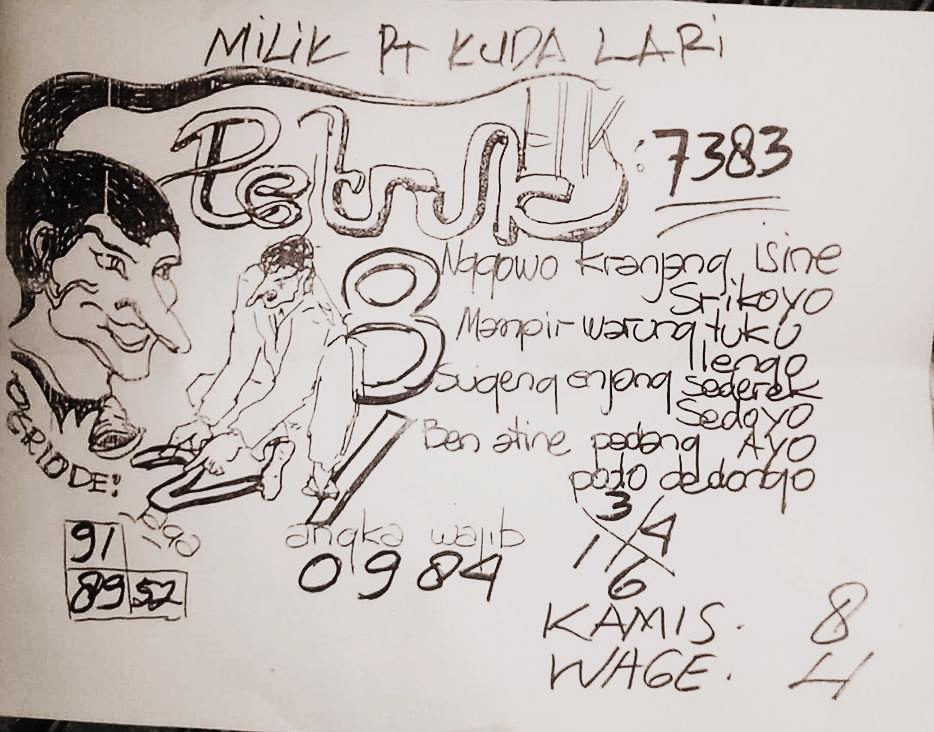 MILIK PT KUDA LARI
Petruk HK : 7383
8
Nggowo kranjang isine
Srikoyo
Mampir warung tuku
llengo
Sugeng enjang sederek
Sedoyo
Ben atine padang Ayo
podo dedongo
PERIODE:
1
angka wajib
0984
91
89 52
3
1 / 4
6
KAMIS. 8
WAGE. 4